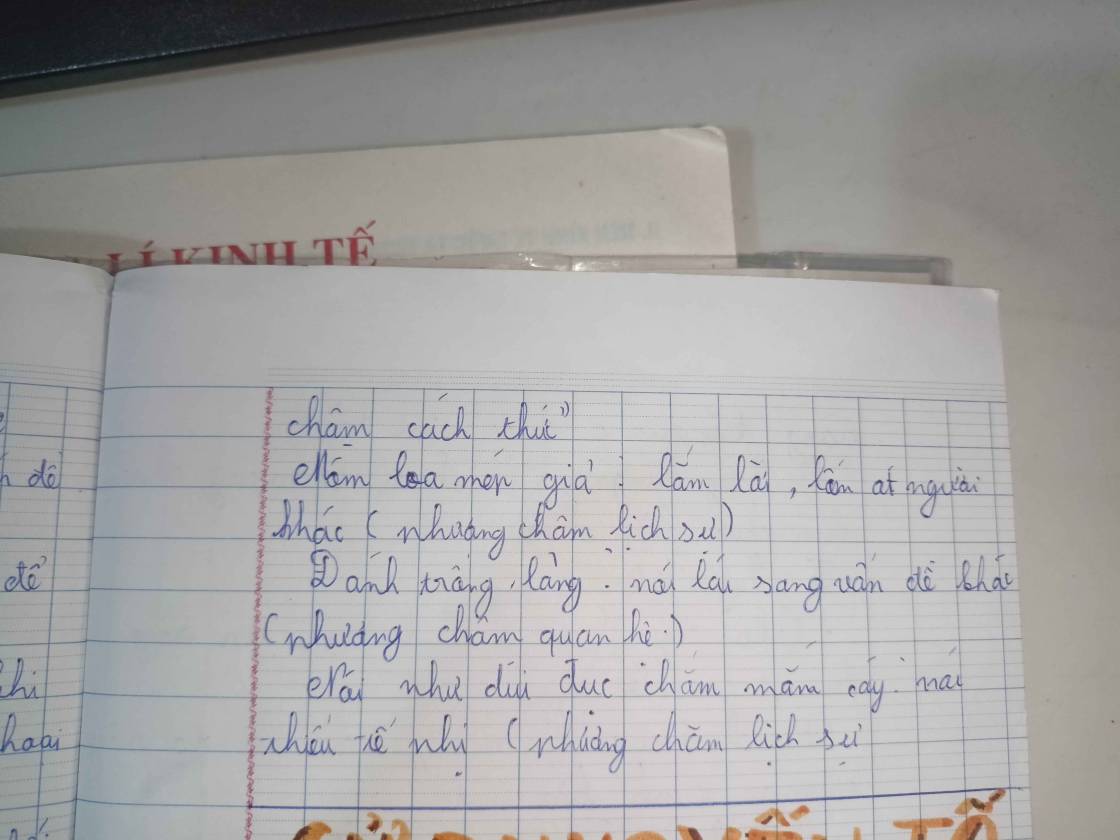 LÍ KINH TẾ
châm cách thức)
Mồm loa mép giải : lắm lời, lấn át người
khác (phương châm lịch sự)
Đánh trống lảng : nói lái sang vấn đề khác
(phương châm quan hệ)
Nói như dùi đục chấm mắm cáy : nói
thiếu tế nhị (phương châm lịch sự
đề
để
chi
hoại